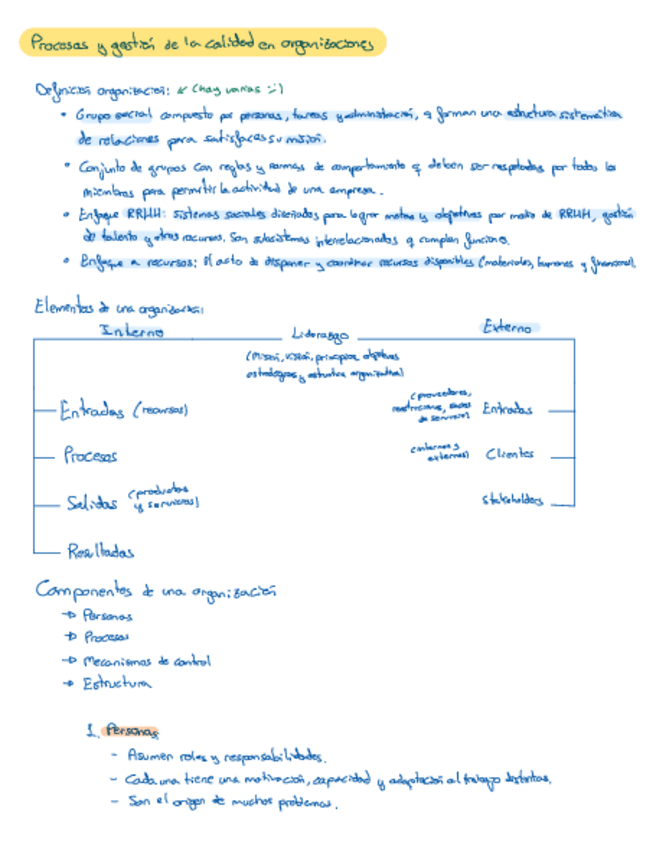 Procesos y gestión de la calidad en organizaciones
Definición organización: ↙ (hay varias :-)
• Grupo social compuesto por personas, tareas y administración, q forman una estructura sistemática
de relaciones para satisfacer su misión.
• Conjunto de grupos con reglas y normas de comportamiento q deben ser respetadas por todos los
miembros para permitir la actividad de una empresa.
• Enfoque RRHH: sistemas sociales diseñados para lograr metas y objetivos por medio de RRHH, gestión
de talento y otros recursos. Son subsistemas interrelacionados q cumplen funciones.
• Enfoque a recursos: El acto de disponer y coordinar recursos disponibles (materiales, humanos y financieros).
Elementos de una organización:
Interno Liderazgo Externo
(Misión, visión, principios, objetivos
estratégicos y estructura organizativa)
Entradas (recursos)
(proveedores,
de servicio) Entradas
Procesos
(internos y
externos) Clientes
Salidas (productos
y servicios)
Stakeholders
Resultados
Componentes de una organización
→ Personas
→ Procesos
→ Mecanismos de control
→ Estructura
1. Personas
- Asumen roles y responsabilidades.
- Cada una tiene una motivación, capacidad y adaptación al trabajo distintas.
- Son el origen de muchos problemas.